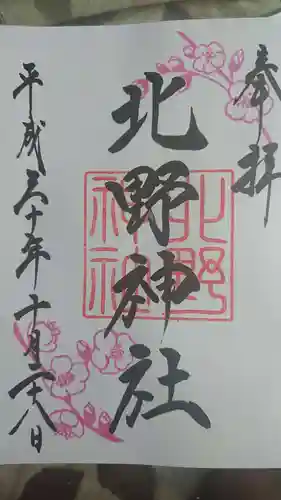 奉拝
北野神社
北野神社
平成三十年十月二十八日